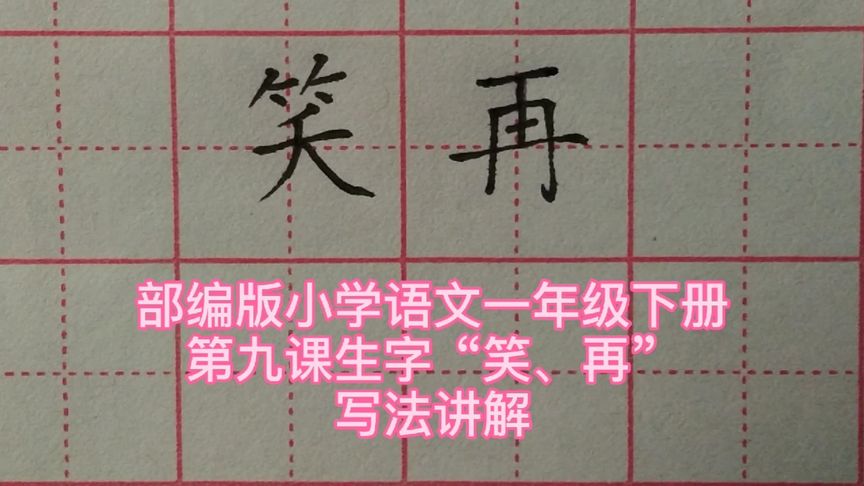 笑 再
部编版小学语文一年级下册
第九课生字“笑、再”
写法讲解